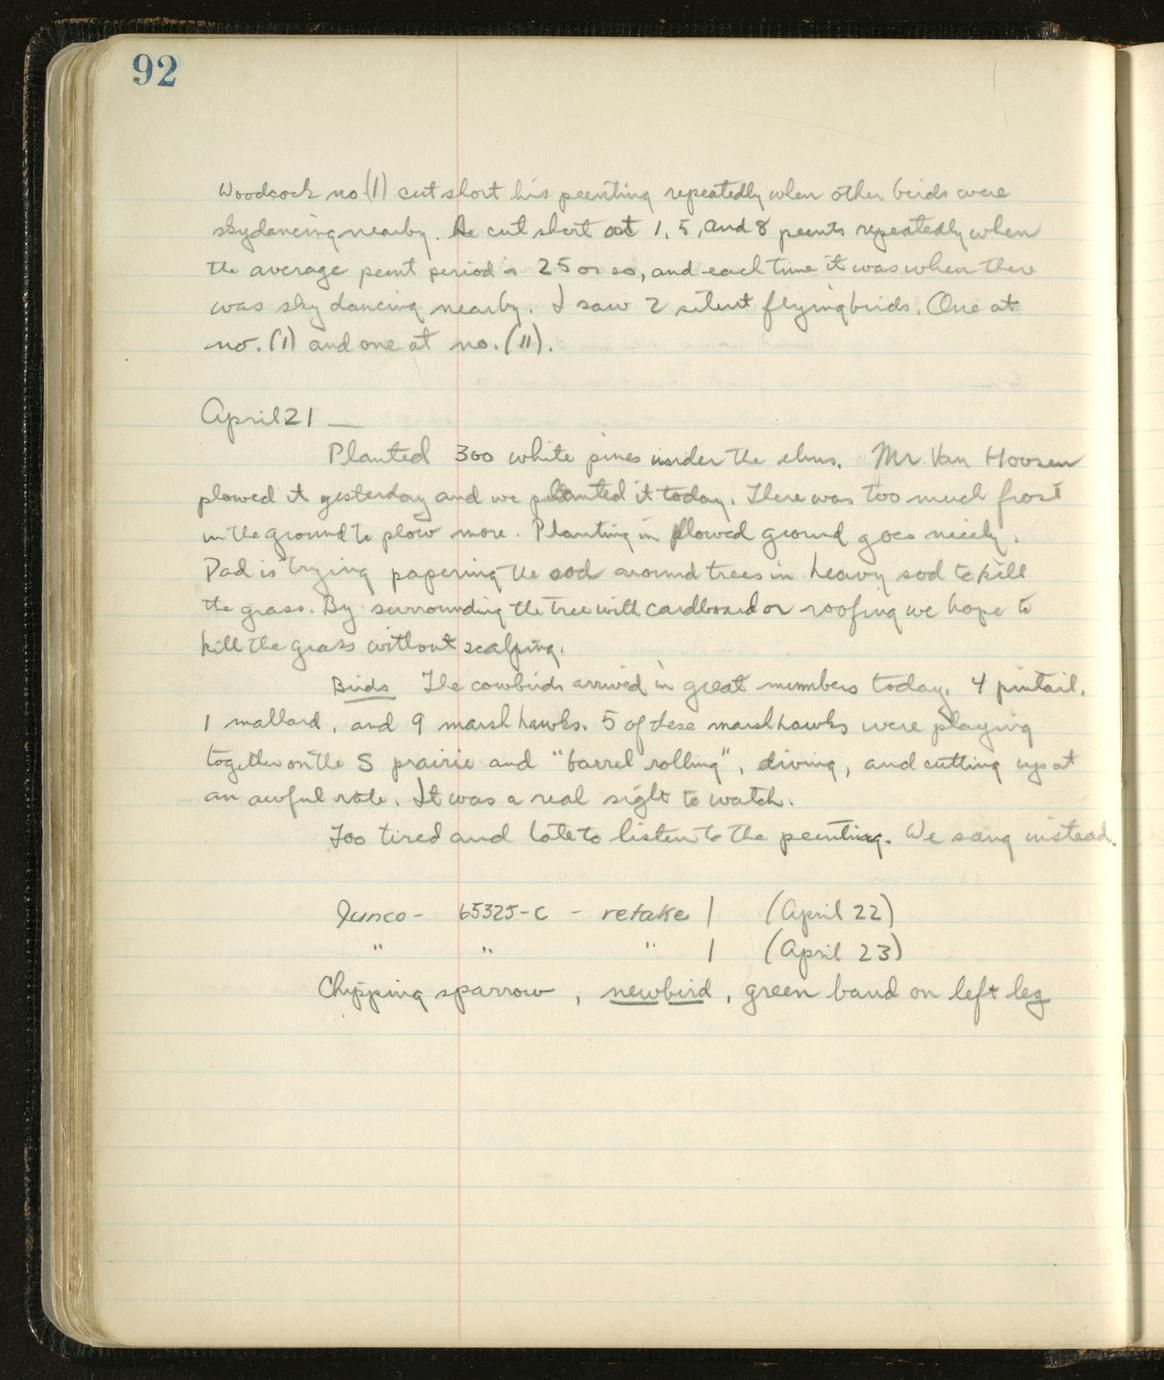 92
Woodcock no.(1) cut short his peenting repeatedly when other birds were
skydancing nearby. He cut short at 1, 5, and 8 peents repeatedly when
the average peent period is 25 or so, and each time it was when there
was sky dancing nearby. I saw 2 silent flying birds. One at
no. (1) and one at no. (11).
April 21 —
Planted 300 white pines under the elms. Mr. Van Hoosen
plowed it yesterday and we planted it today. There was too much frost
in the ground to plow more. Planting in plowed ground goes nicely.
Dad is trying papering the sod around trees in heavy sod to kill
the grass. By surrounding the tree with cardboard or roofing we hope to
kill the grass without scalping.
Birds The cowbirds arrived in great numbers today. 4 pintail,
1 mallard, and 9 marsh hawks. 5 of these marsh hawks were playing
together on the S prairie and "barrel rolling", diving, and cutting up at
an awful rate. It was a real sight to watch.
Too tired and late to listen to the peenting. We sang instead.
Junco - 65325-C - retake 1 (April 22)
" " " 1 (April 23)
Chipping sparrow, newbird, green band on left leg